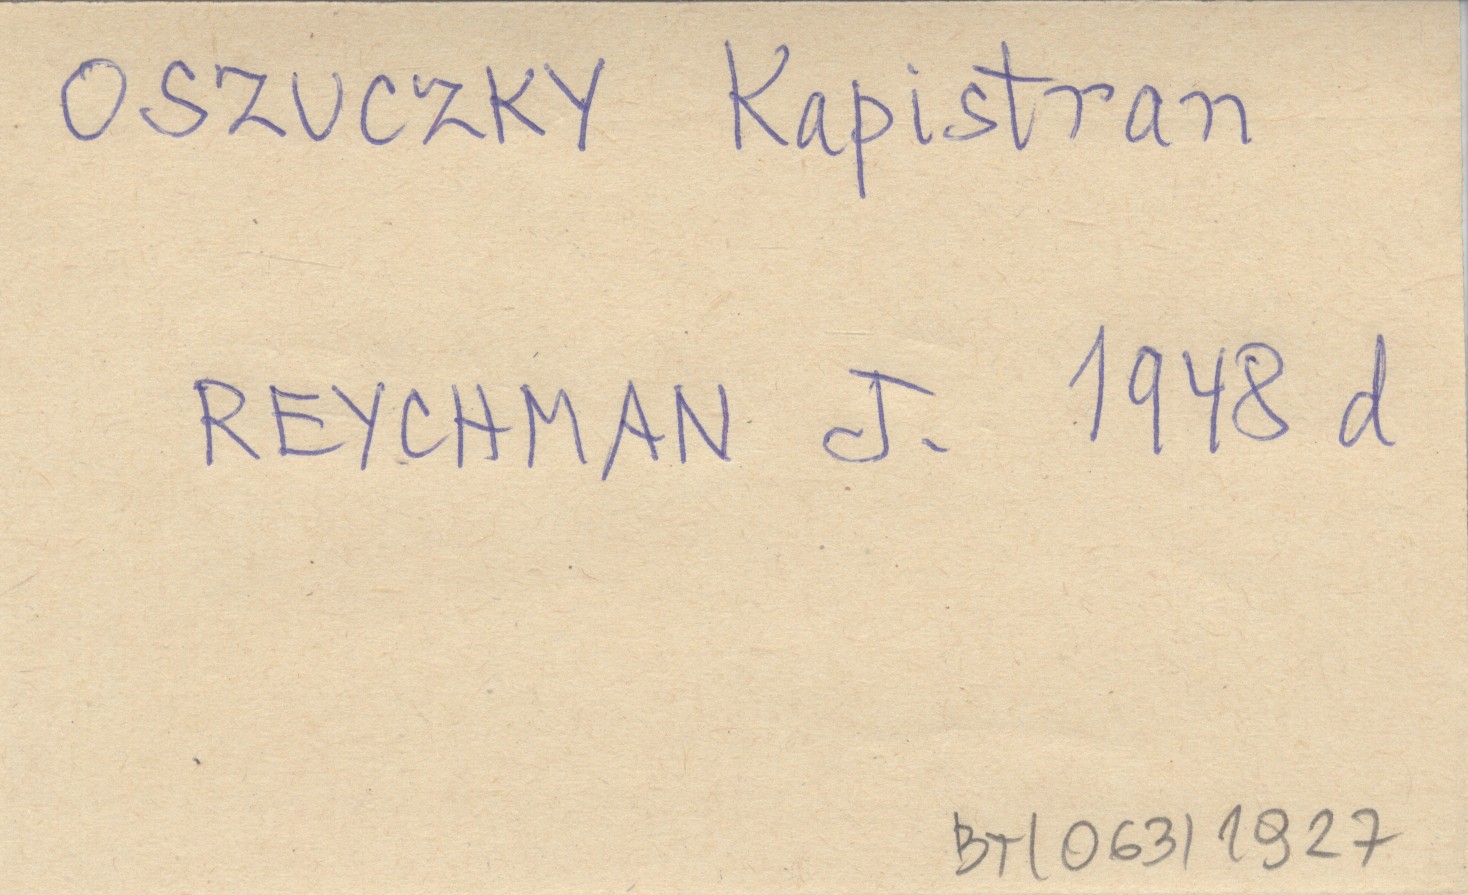 OSZUCZKY Kapistran
REYCHMAN J. 1948 d
BT(063)1927